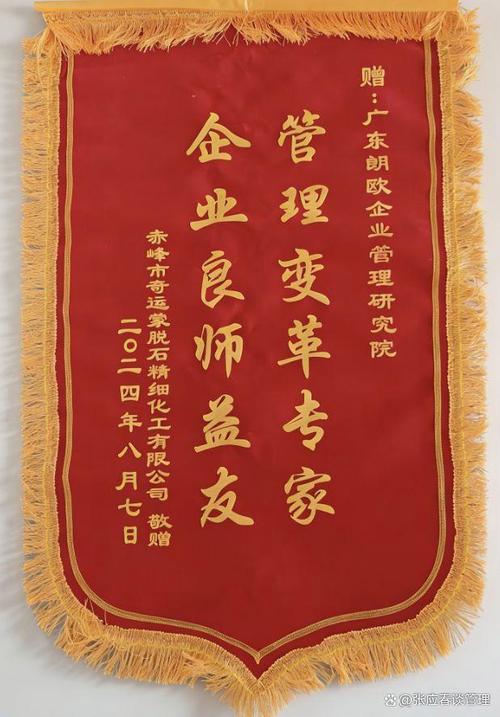 赠：广东朗欧企业管理研究院
管理变革专家
企业良师益友
赤峰市奇运蒙脱石精细化工有限公司 敬赠
二〇二四年八月七日
张应春谈管理